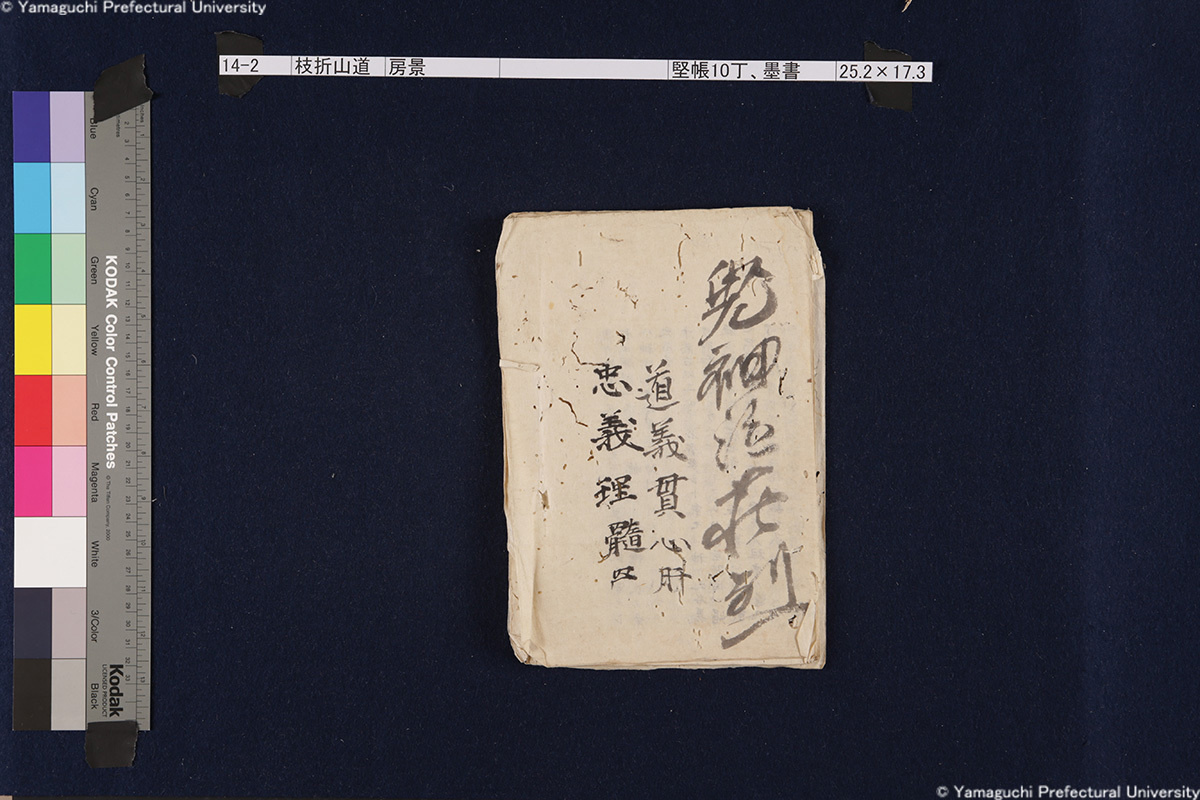 © Yamaguchi Prefectural University
14-2 枝折山道 房景 堅帳10丁、墨書 25.2×17.3
道義貫心肝
忠義理髓
KODAK Color Control Patches
© The Tiffen Company, 2000
Kodak
LICENSED PRODUCT
Blue
Cyan
Green
Yellow
Red
Magenta
White
3/Color
Black
© Yamaguchi Prefectural University